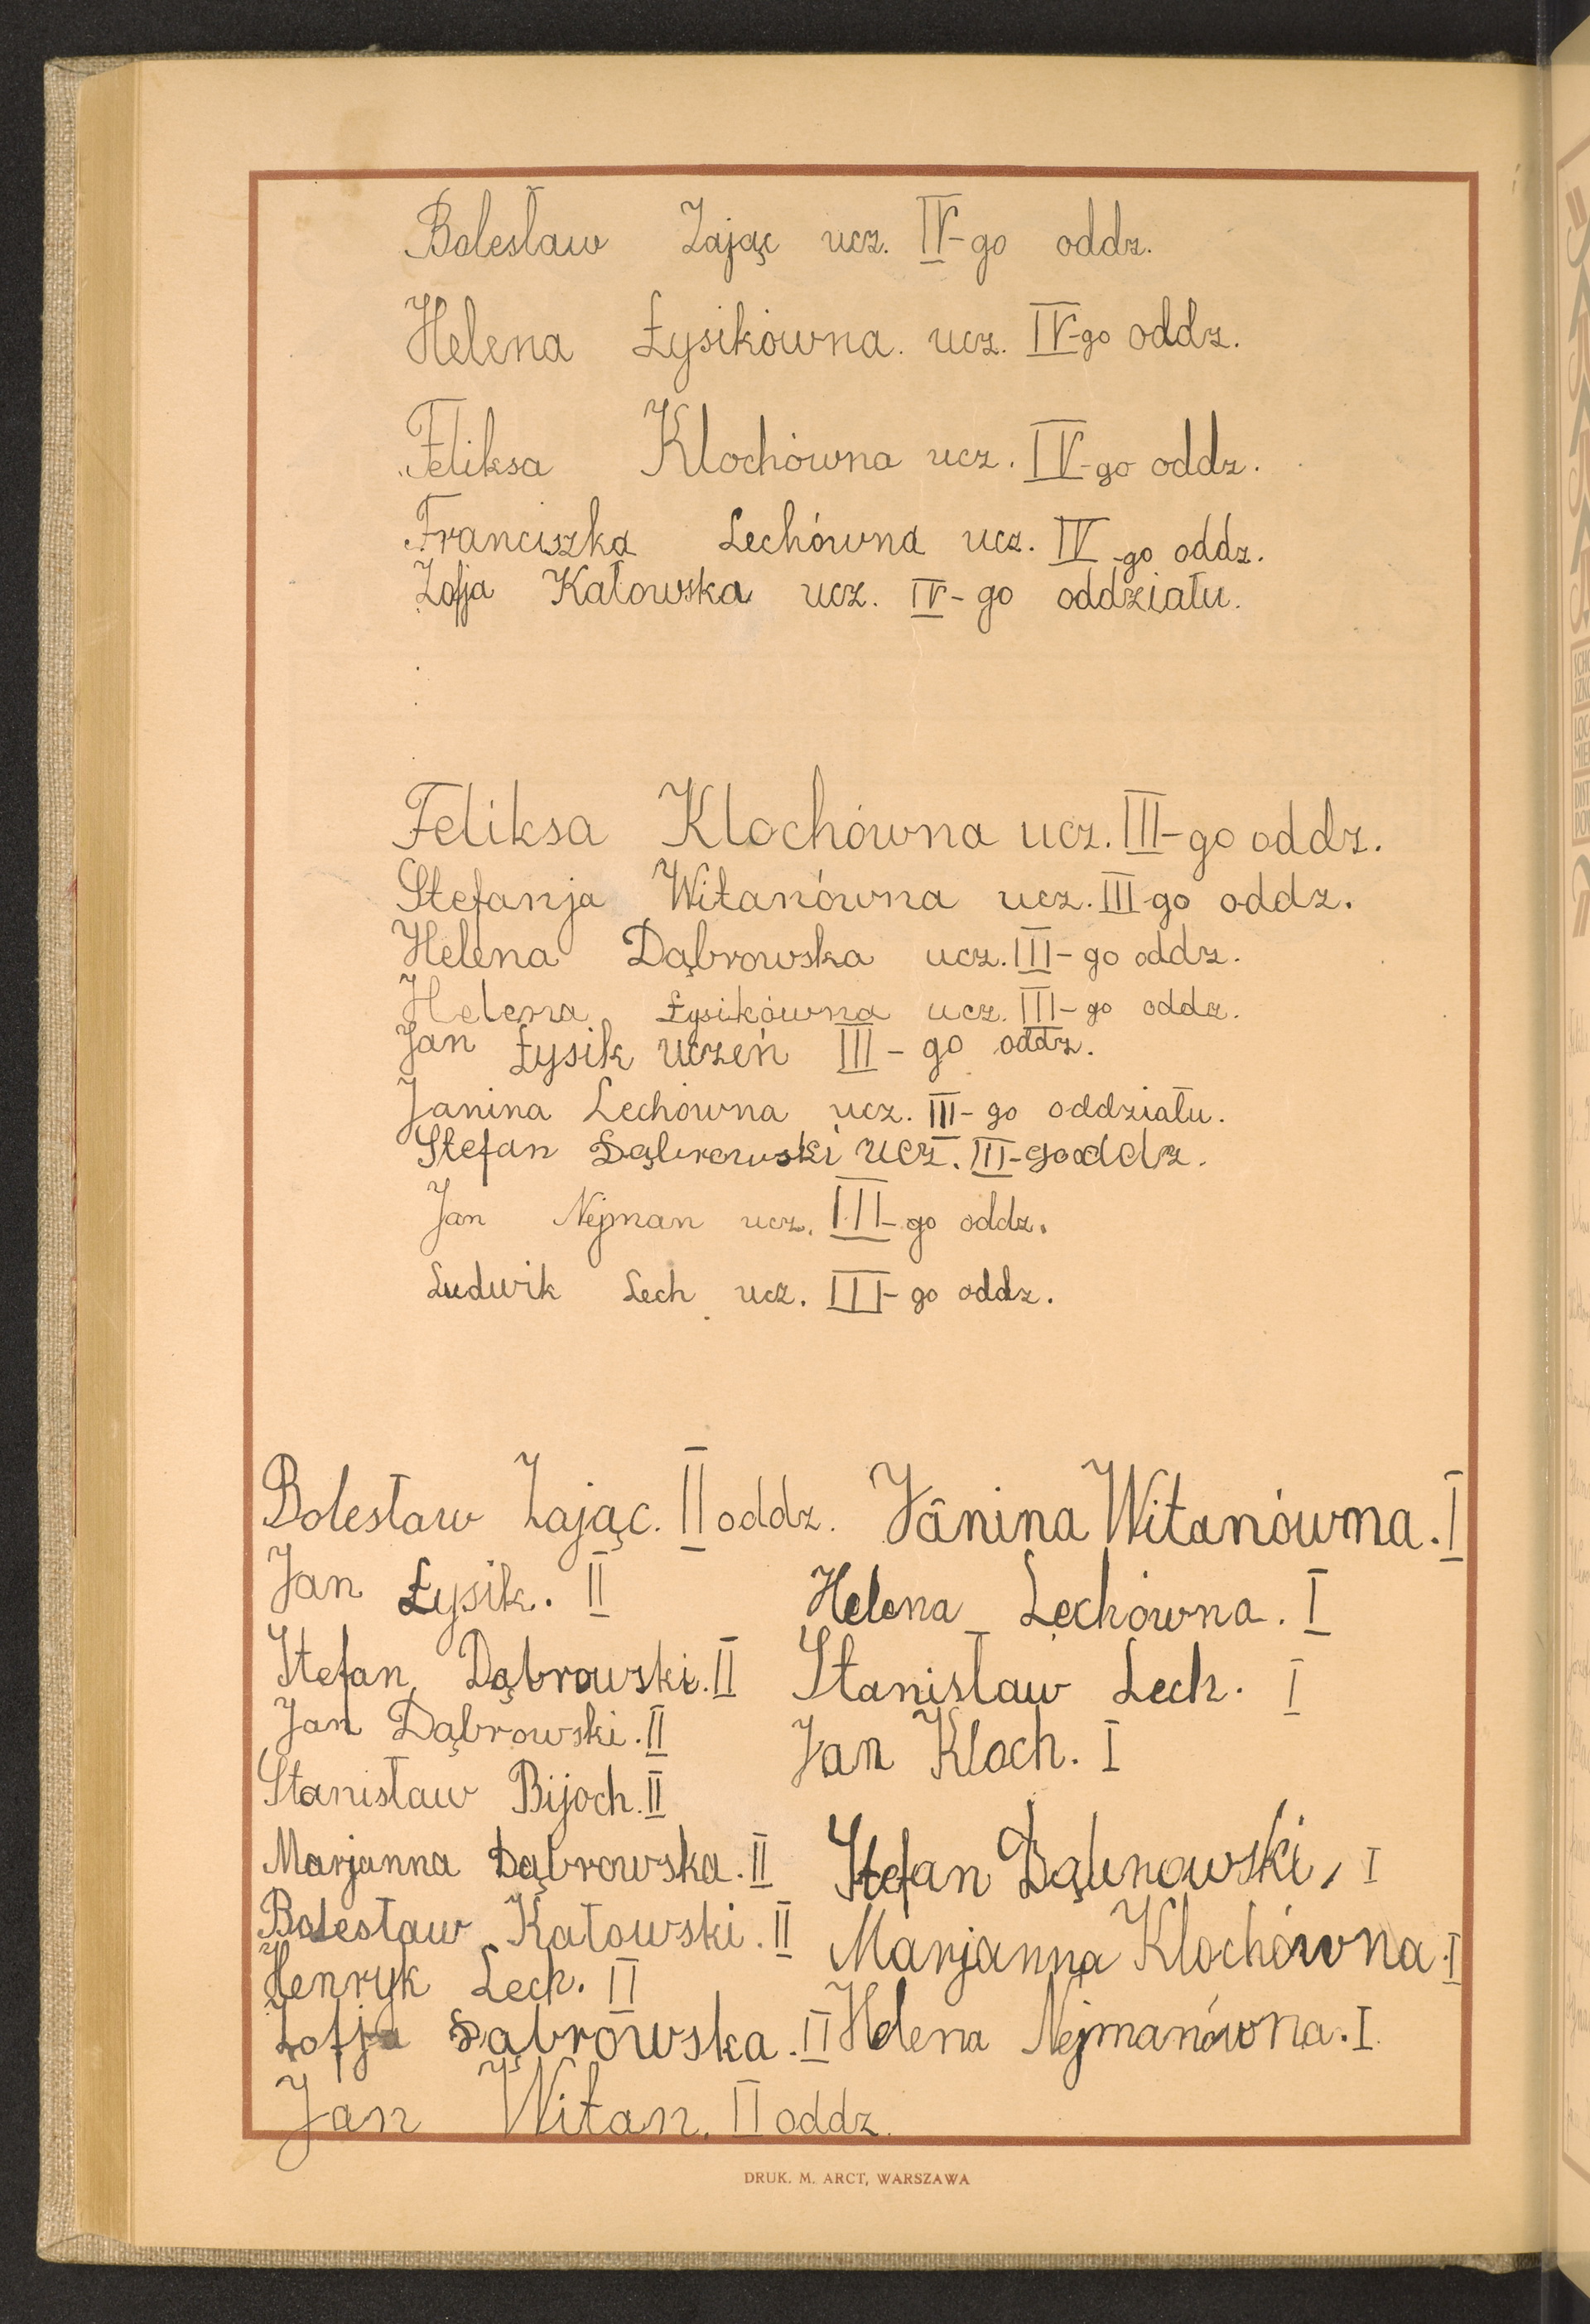 Bolesław Zając ucz. IV-go oddz.
Helena Łysikówna. ucz. IV-go oddz.
Feliksa Klochówna ucz. IV-go oddz.
Franciszka Lechówna ucz. IV-go oddz.
Zofja Katowska ucz. IV-go oddziału.
Feliksa Klochówna ucz. III-go oddz.
Stefanja Witanówna ucz. III-go oddz.
Helena Dąbrowska ucz. III-go oddz.
Helena Łysikówna ucz. III-go oddz.
Jan Łysik uczeń III-go oddz.
Janina Lechówna ucz. III-go oddziału.
Stefan Dąbrowski ucz. III-go oddz.
Jan Nejman ucz. III-go oddz.
Ludwik Lech ucz. III-go oddz.
Bolesław Zając. II oddz.
Jan Łysik. II
Stefan Dąbrowski. II
Jan Dąbrowski. II
Stanisław Bijoch. II
Marjanna Dąbrowska. II
Bolesław Katowski. II
Henryk Lech. II
Zofja Dąbrowska. II
Jan Witan. II oddz.
Janina Witanówna. I
Helena Lechówna. I
Stanisław Lech. I
Jan Kloch. I
Stefan Dąbnowski, I
Marjanna Klochówna. I
Helena Nejmanówna. I
DRUK. M. ARCT, WARSZAWA